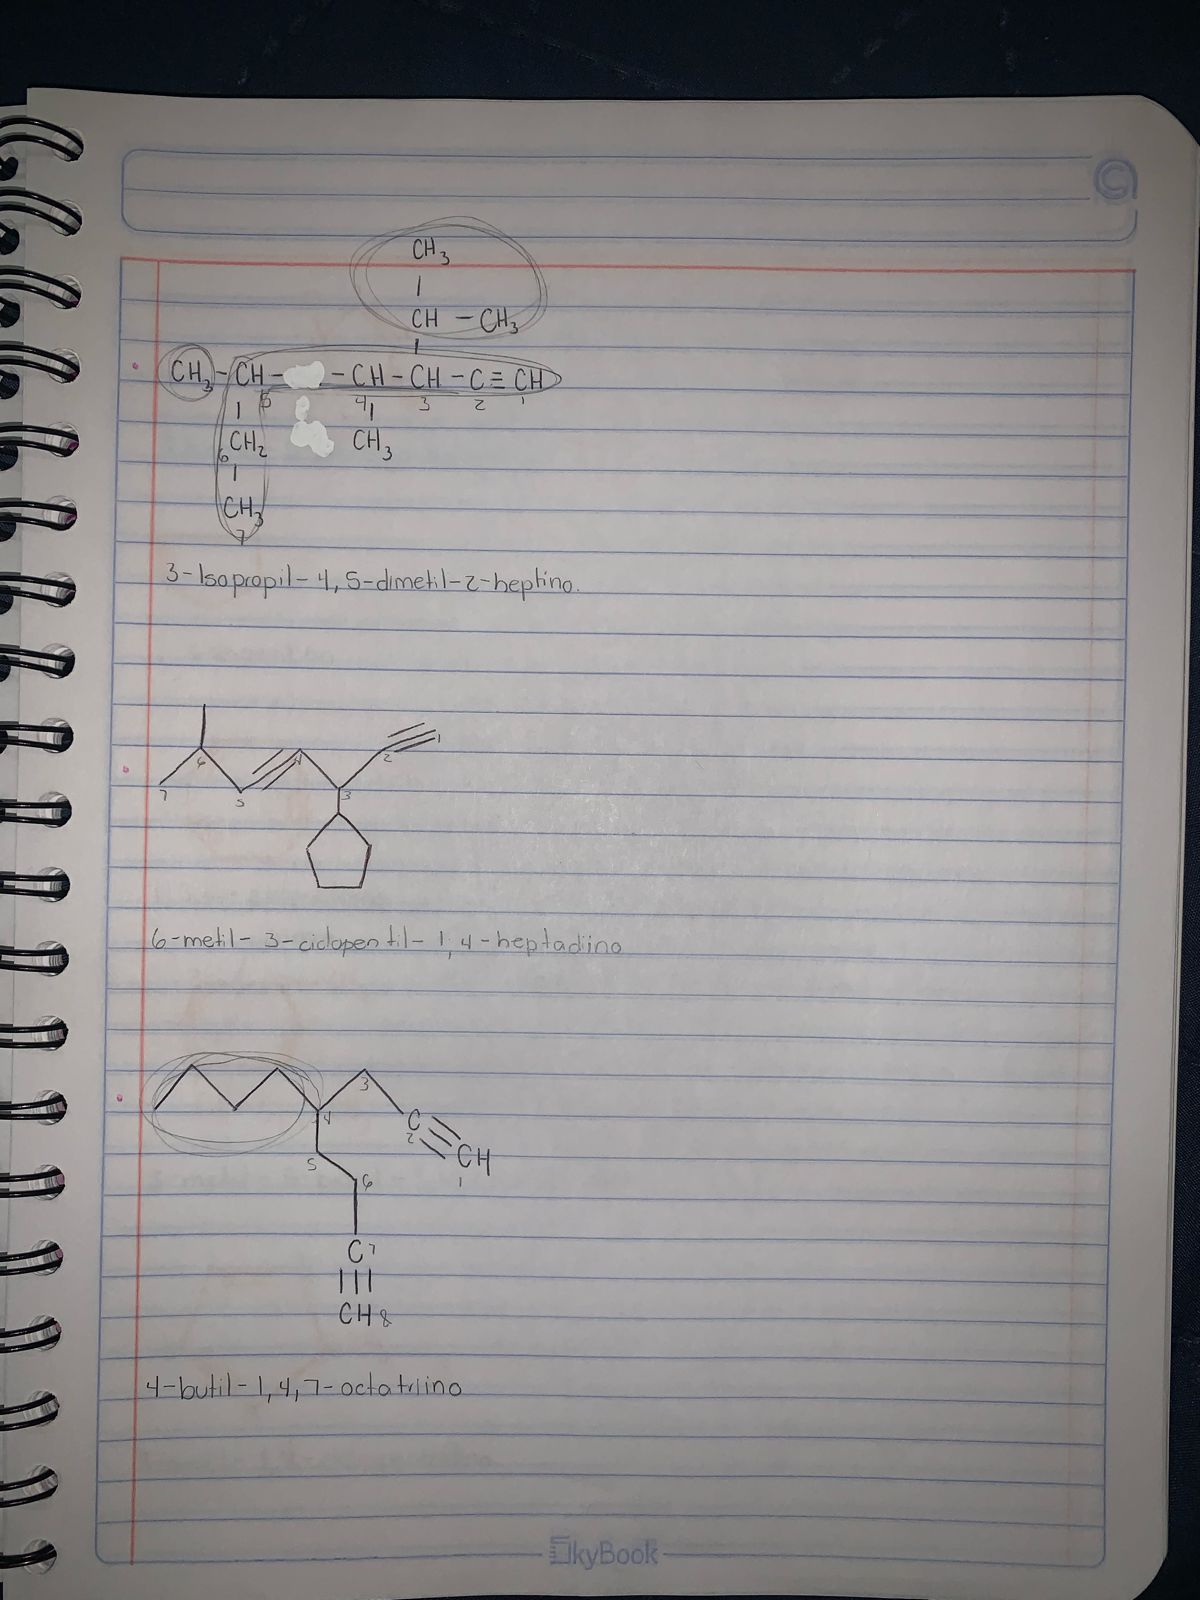 CH3
|
CH - CH3
|
CH3 - CH - - CH - CH - C ≡ CH
5 4 3 2 1
| |
6 CH2 CH3
|
CH3
7
3-Isopropil-4,5-dimetil-2-heptino.
6 4 2 1
7 5 3
6-metil-3-ciclopentil-1,4-heptadiino
3
4 C
2
CH
5 1
6
C 7
|||
CH 8
4-butil-1,4,7-octatriino
SkyBook